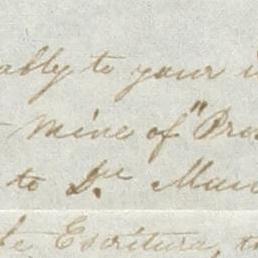 ably to your
mine of "Pro
to Dn Man
de Escritura, t